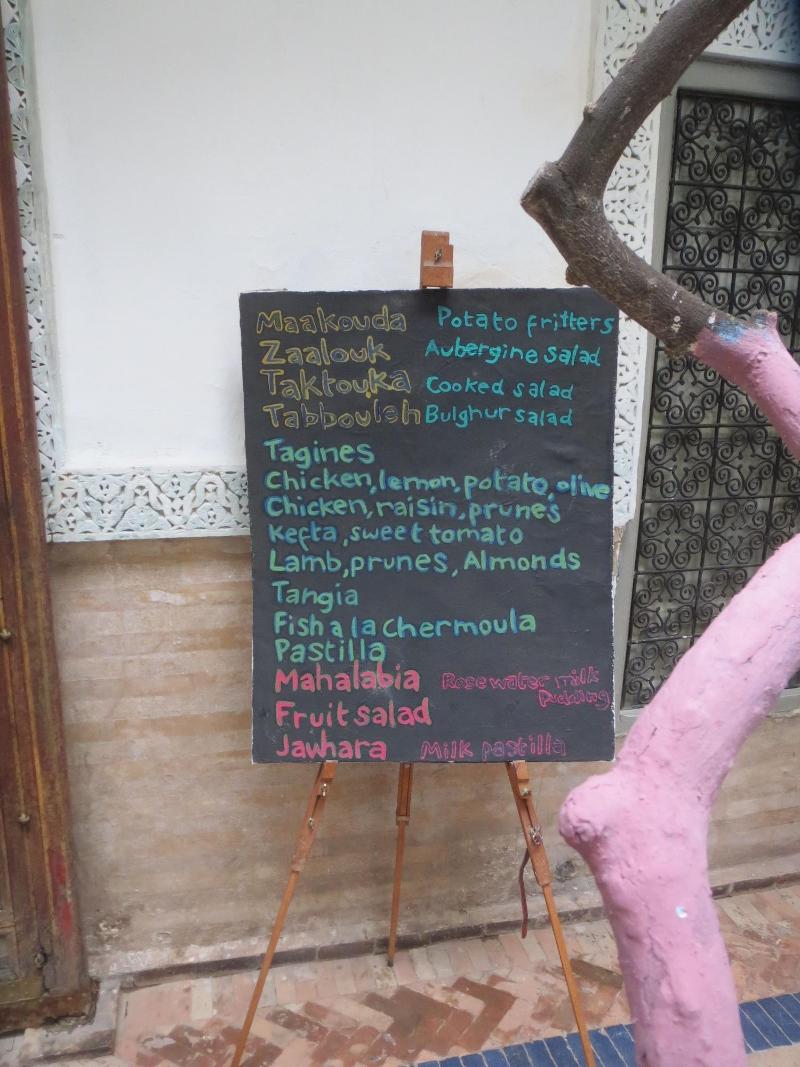 Maakouda Potato fritters
Zaalouk Aubergine salad
Taktouka Cooked salad
Tabbouleh Bulghur salad
Tagines
Chicken, lemon, potato, olive
Chicken, raisin, prunes
Kefta, sweet tomato
Lamb, prunes, Almonds
Tangia
Fish a la chermoula
Pastilla
Mahalabia Rosewater milk
Pudding
Fruit salad
Jawhara Milk pastilla